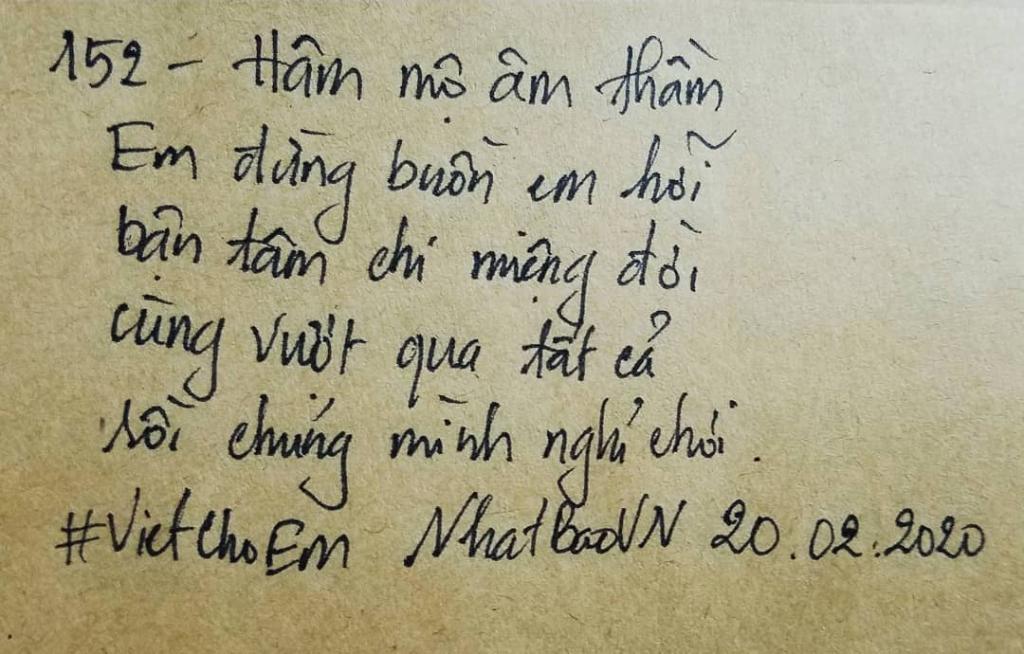 152 - Hâm mộ âm thầm
Em đừng buồn em hỡi
bận tâm chi miệng đời
cùng vượt qua tất cả
rồi chúng mình nghỉ chơi.
#VietChoEm NhatBaoVN 20.02.2020